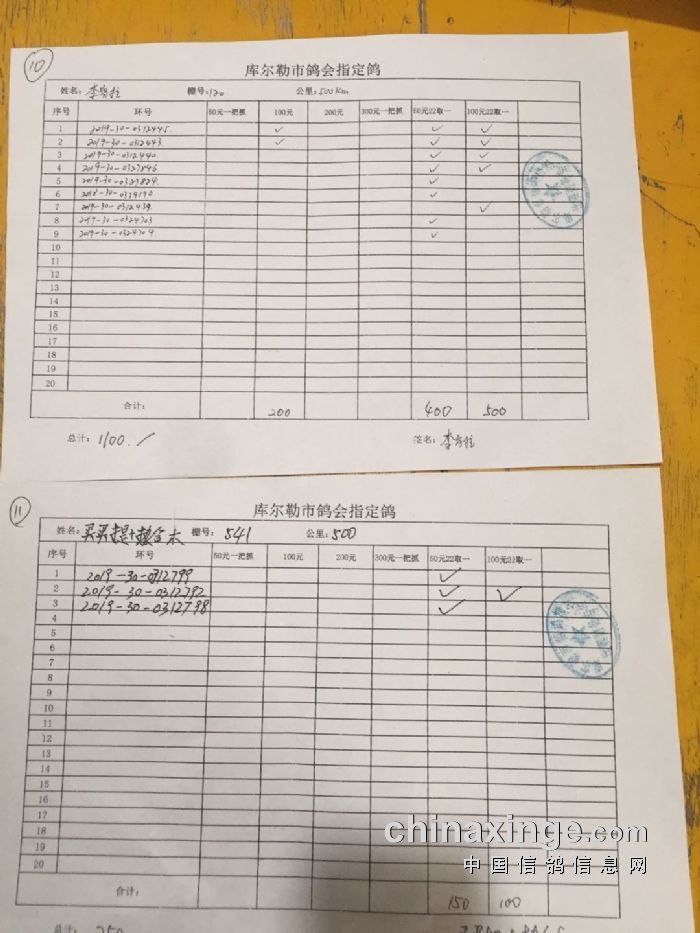 10
库尔勒市鸽会指定鸽
姓名: 棚号:120 公里:500Km
序号 环号 50元一把抓 100元 200元 300元一把抓 50元22取一 100元22取一
1 2019-30-0312445 ✓ ✓ ✓
2 2019-30-0312443 ✓ ✓ ✓
3 2019-30-0312440 ✓ ✓
4 2019-30-0327846 ✓ ✓
5 2019-30-0327824 ✓
6 ✓
7 2019-30-0312439 ✓
8 2019-30-0324703 ✓
9 2019-30-0324704 ✓
10
11
12
13
14
15
16
17
18
19
20
合计: 200 400 500
总计: 1100.
签名:
11
库尔勒市鸽会指定鸽
姓名: 棚号: 541 公里:500
序号 环号 50元一把抓 100元 200元 300元一把抓 50元22取一 100元22取一
1 2019-30-0312799 ✓
2 2019-30-0312792 ✓ ✓
3 2019-30-0312798 ✓
4
5
6
7
8
9
10
11
12
13
14
15
16
17
18
19
20
合计: 150 100
总计: 250
chinaxinge.com
中国信鸽信息网